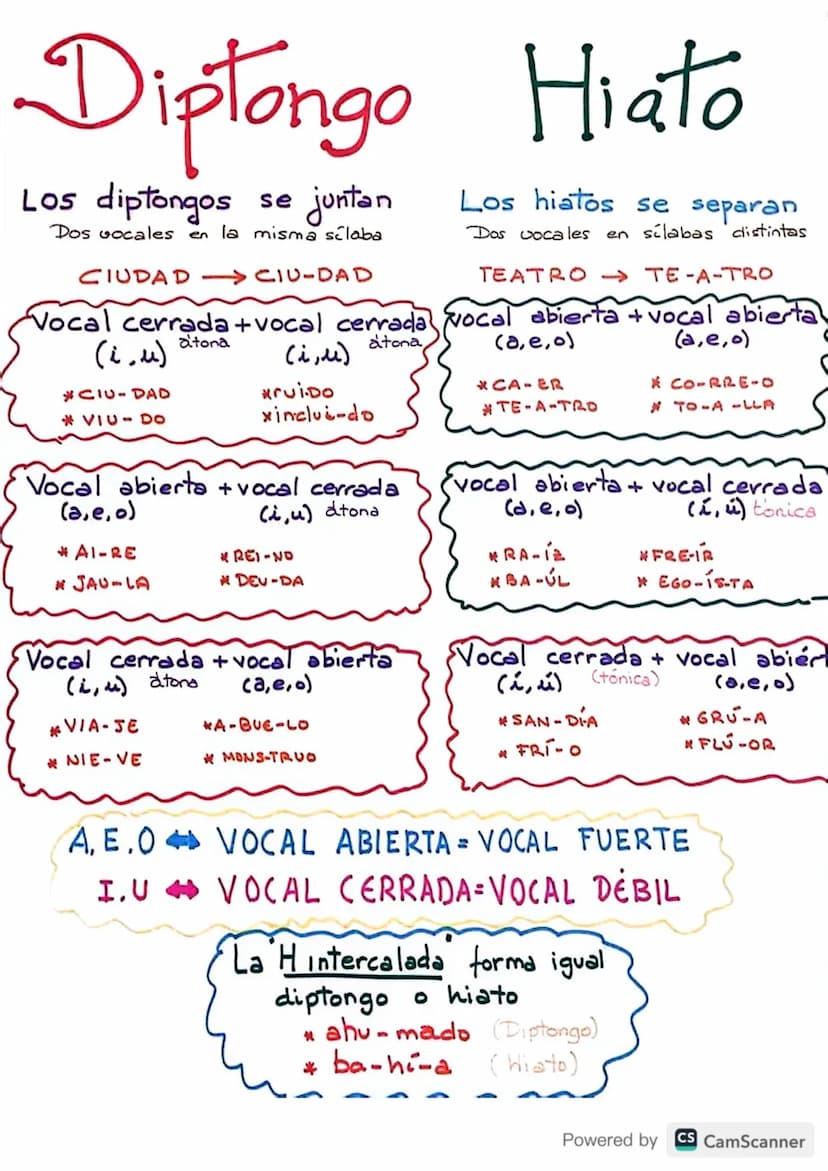 Diptongo
Los diptongos se juntan
Dos vocales en la misma sílaba
CIUDAD → CIU-DAD
Vocal cerrada + vocal cerrada
(i,u) átona (i,u) átona
* CIU-DAD * rui-DO
* VIU-DO * inclui-do
Vocal abierta + vocal cerrada
(a,e,o) (i,u) átona
* AI-RE * REI-NO
* JAU-LA * DEU-DA
Vocal cerrada + vocal abierta
(i,u) átona (a,e,o)
* VIA-JE * A-BUE-LO
* NIE-VE * MONS-TRUO
Hiato
Los hiatos se separan
Dos vocales en sílabas distintas
TEATRO → TE-A-TRO
vocal abierta + vocal abierta
(a,e,o) (a,e,o)
* CA-ER * CO-RRE-O
* TE-A-TRO * TO-A-LLA
vocal abierta + vocal cerrada
(a,e,o) (í,ú) tónica
* RA-ÍZ * FRE-ÍR
* BA-ÚL * EGO-ÍS-TA
Vocal cerrada + vocal abiert
(í,ú) (tónica) (a,e,o)
* SAN-DÍA * GRÚ-A
* FRÍ-O * FLÚ-OR
A,E,O ⇔ VOCAL ABIERTA = VOCAL FUERTE
I,U ⇔ VOCAL CERRADA = VOCAL DÉBIL
La "H intercalada" forma igual
diptongo o hiato
* ahu-mado (Diptongo)
* ba-hí-a (Hiato)
Powered by CS CamScanner